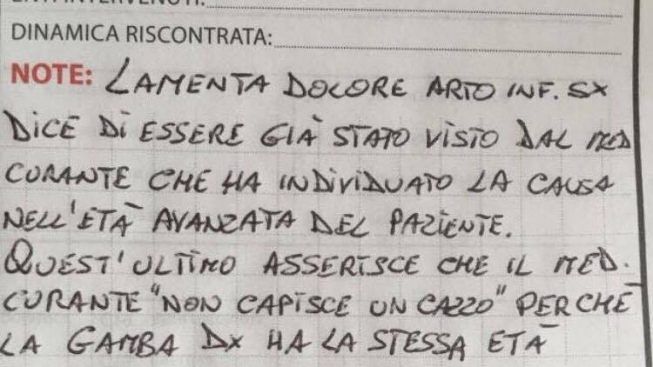 DINAMICA RISCONTRATA:
NOTE: LAMENTA DOLORE ARTO INF. SX
DICE DI ESSERE GIÀ STATO VISTO DAL MED
CURANTE CHE HA INDIVIDUATO LA CAUSA
NELL'ETÀ AVANZATA DEL PAZIENTE.
QUEST'ULTIMO ASSERISCE CHE IL MED.
CURANTE "NON CAPISCE UN CAZZO" PERCHÉ
LA GAMBA DX HA LA STESSA ETÀ